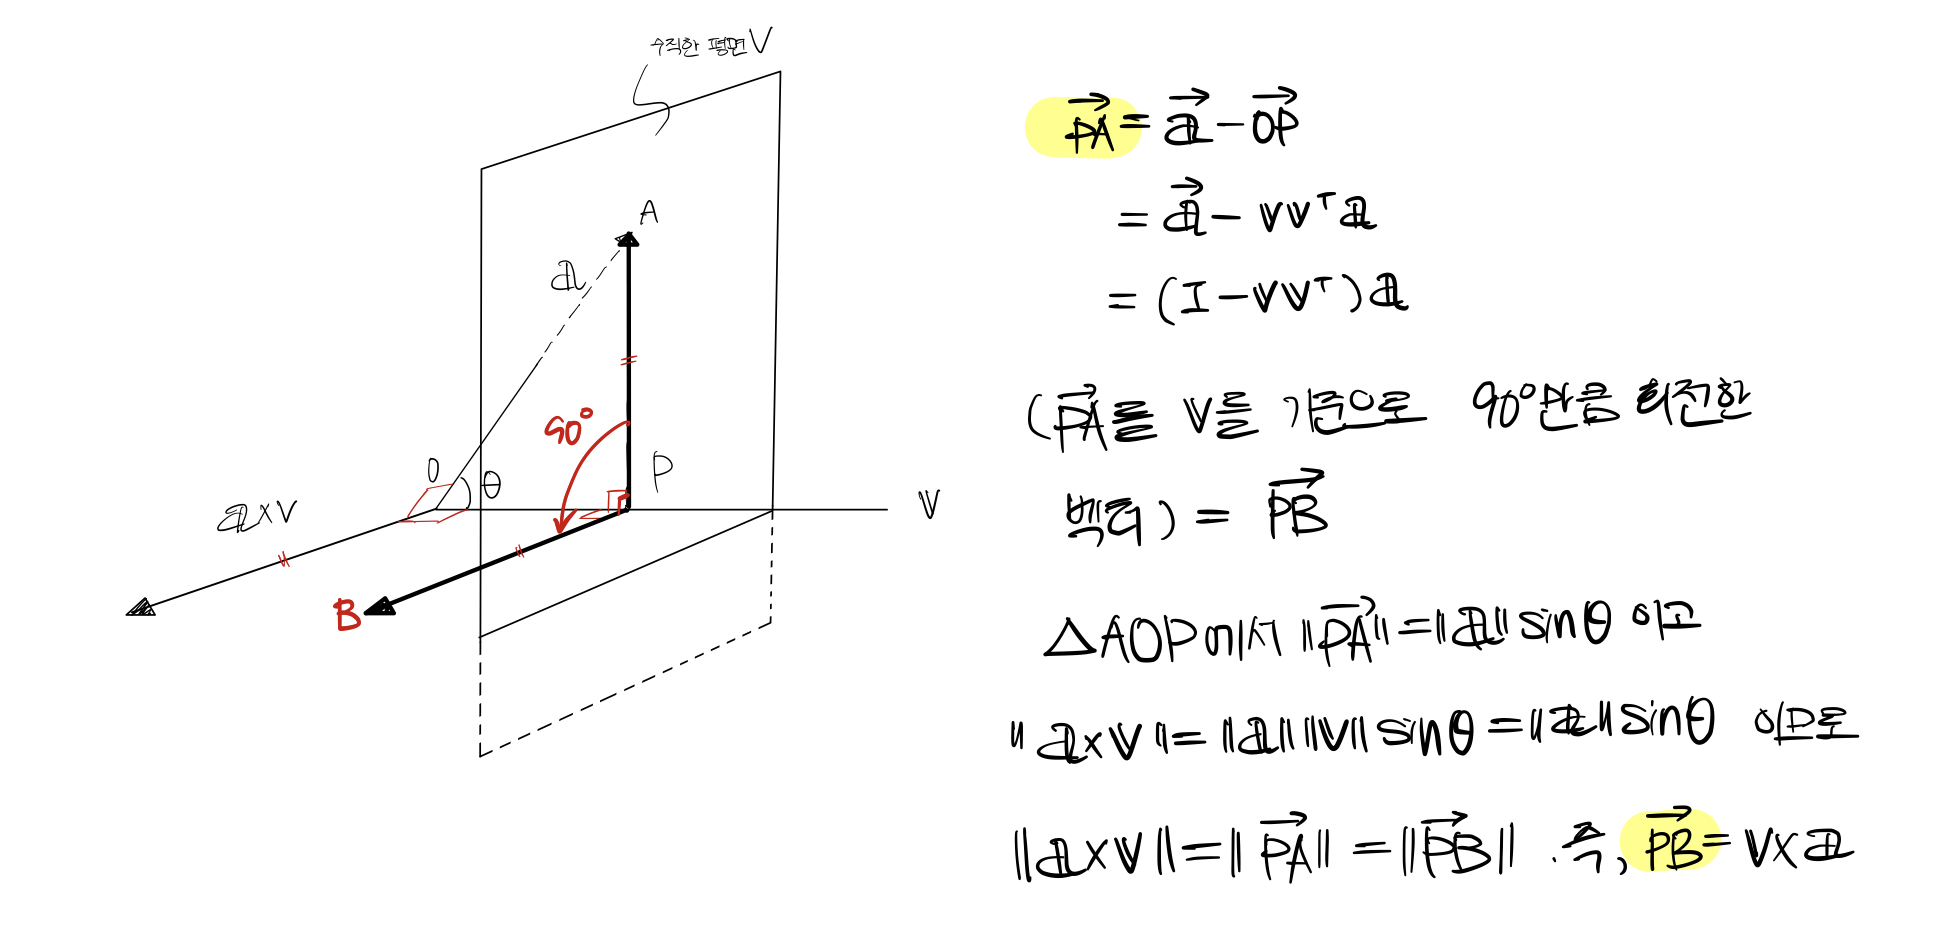 수직한 평면 V
A
a
90°
O
θ
P
a×v
v
B
PA = a − OP
= a − vvᵀa
= (I − vvᵀ)a
(PA를 v를 기준으로 90°만큼 회전한
벡터) = PB
△AOP에서 ‖PA‖ = ‖a‖ sinθ 이고
‖a×v‖ = ‖a‖‖v‖ sinθ = ‖a‖ sinθ 이므로
‖a×v‖ = ‖PA‖ = ‖PB‖. 즉, PB = v×a